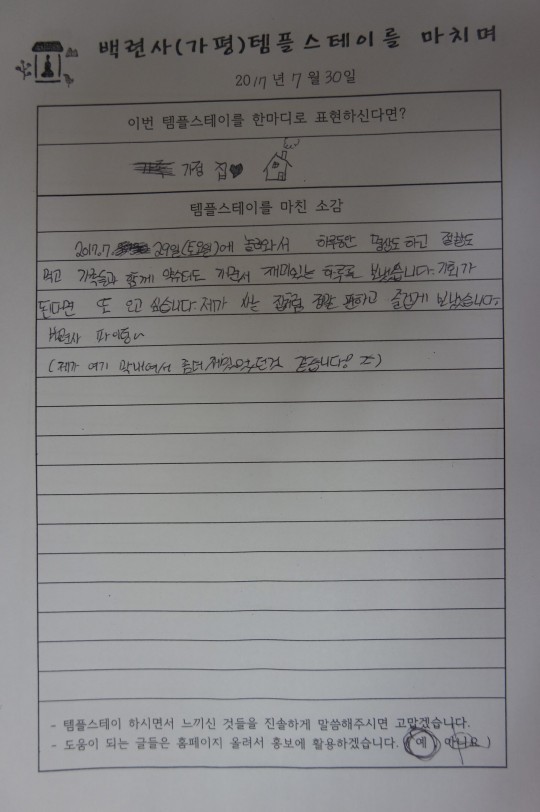 백련사(가평)템플스테이를 마치며
2017년 7월 30일
이번 템플스테이를 한마디로 표현하신다면?
가정 집
템플스테이를 마친 소감
2017.7. 29일(토요일)에 놀러와서 하루동안 명상도 하고 절밥도
먹고 가족들과 함께 약수터도 가면서 재미있는 하루를 보냈습니다. 기회가
된다면 또 오고 싶습니다. 제가 사는 집처럼 정말 편하고 즐겁게 보냈습니다.
백련사 파이팅
(제가 여기 막내여서 좀더 재밌었던것 같습니다!)
- 템플스테이 하시면서 느끼신 것들을 진솔하게 말씀해주시면 고맙겠습니다.
- 도움이 되는 글들은 홈페이지 올려서 홍보에 활용하겠습니다. (예, 아니요)